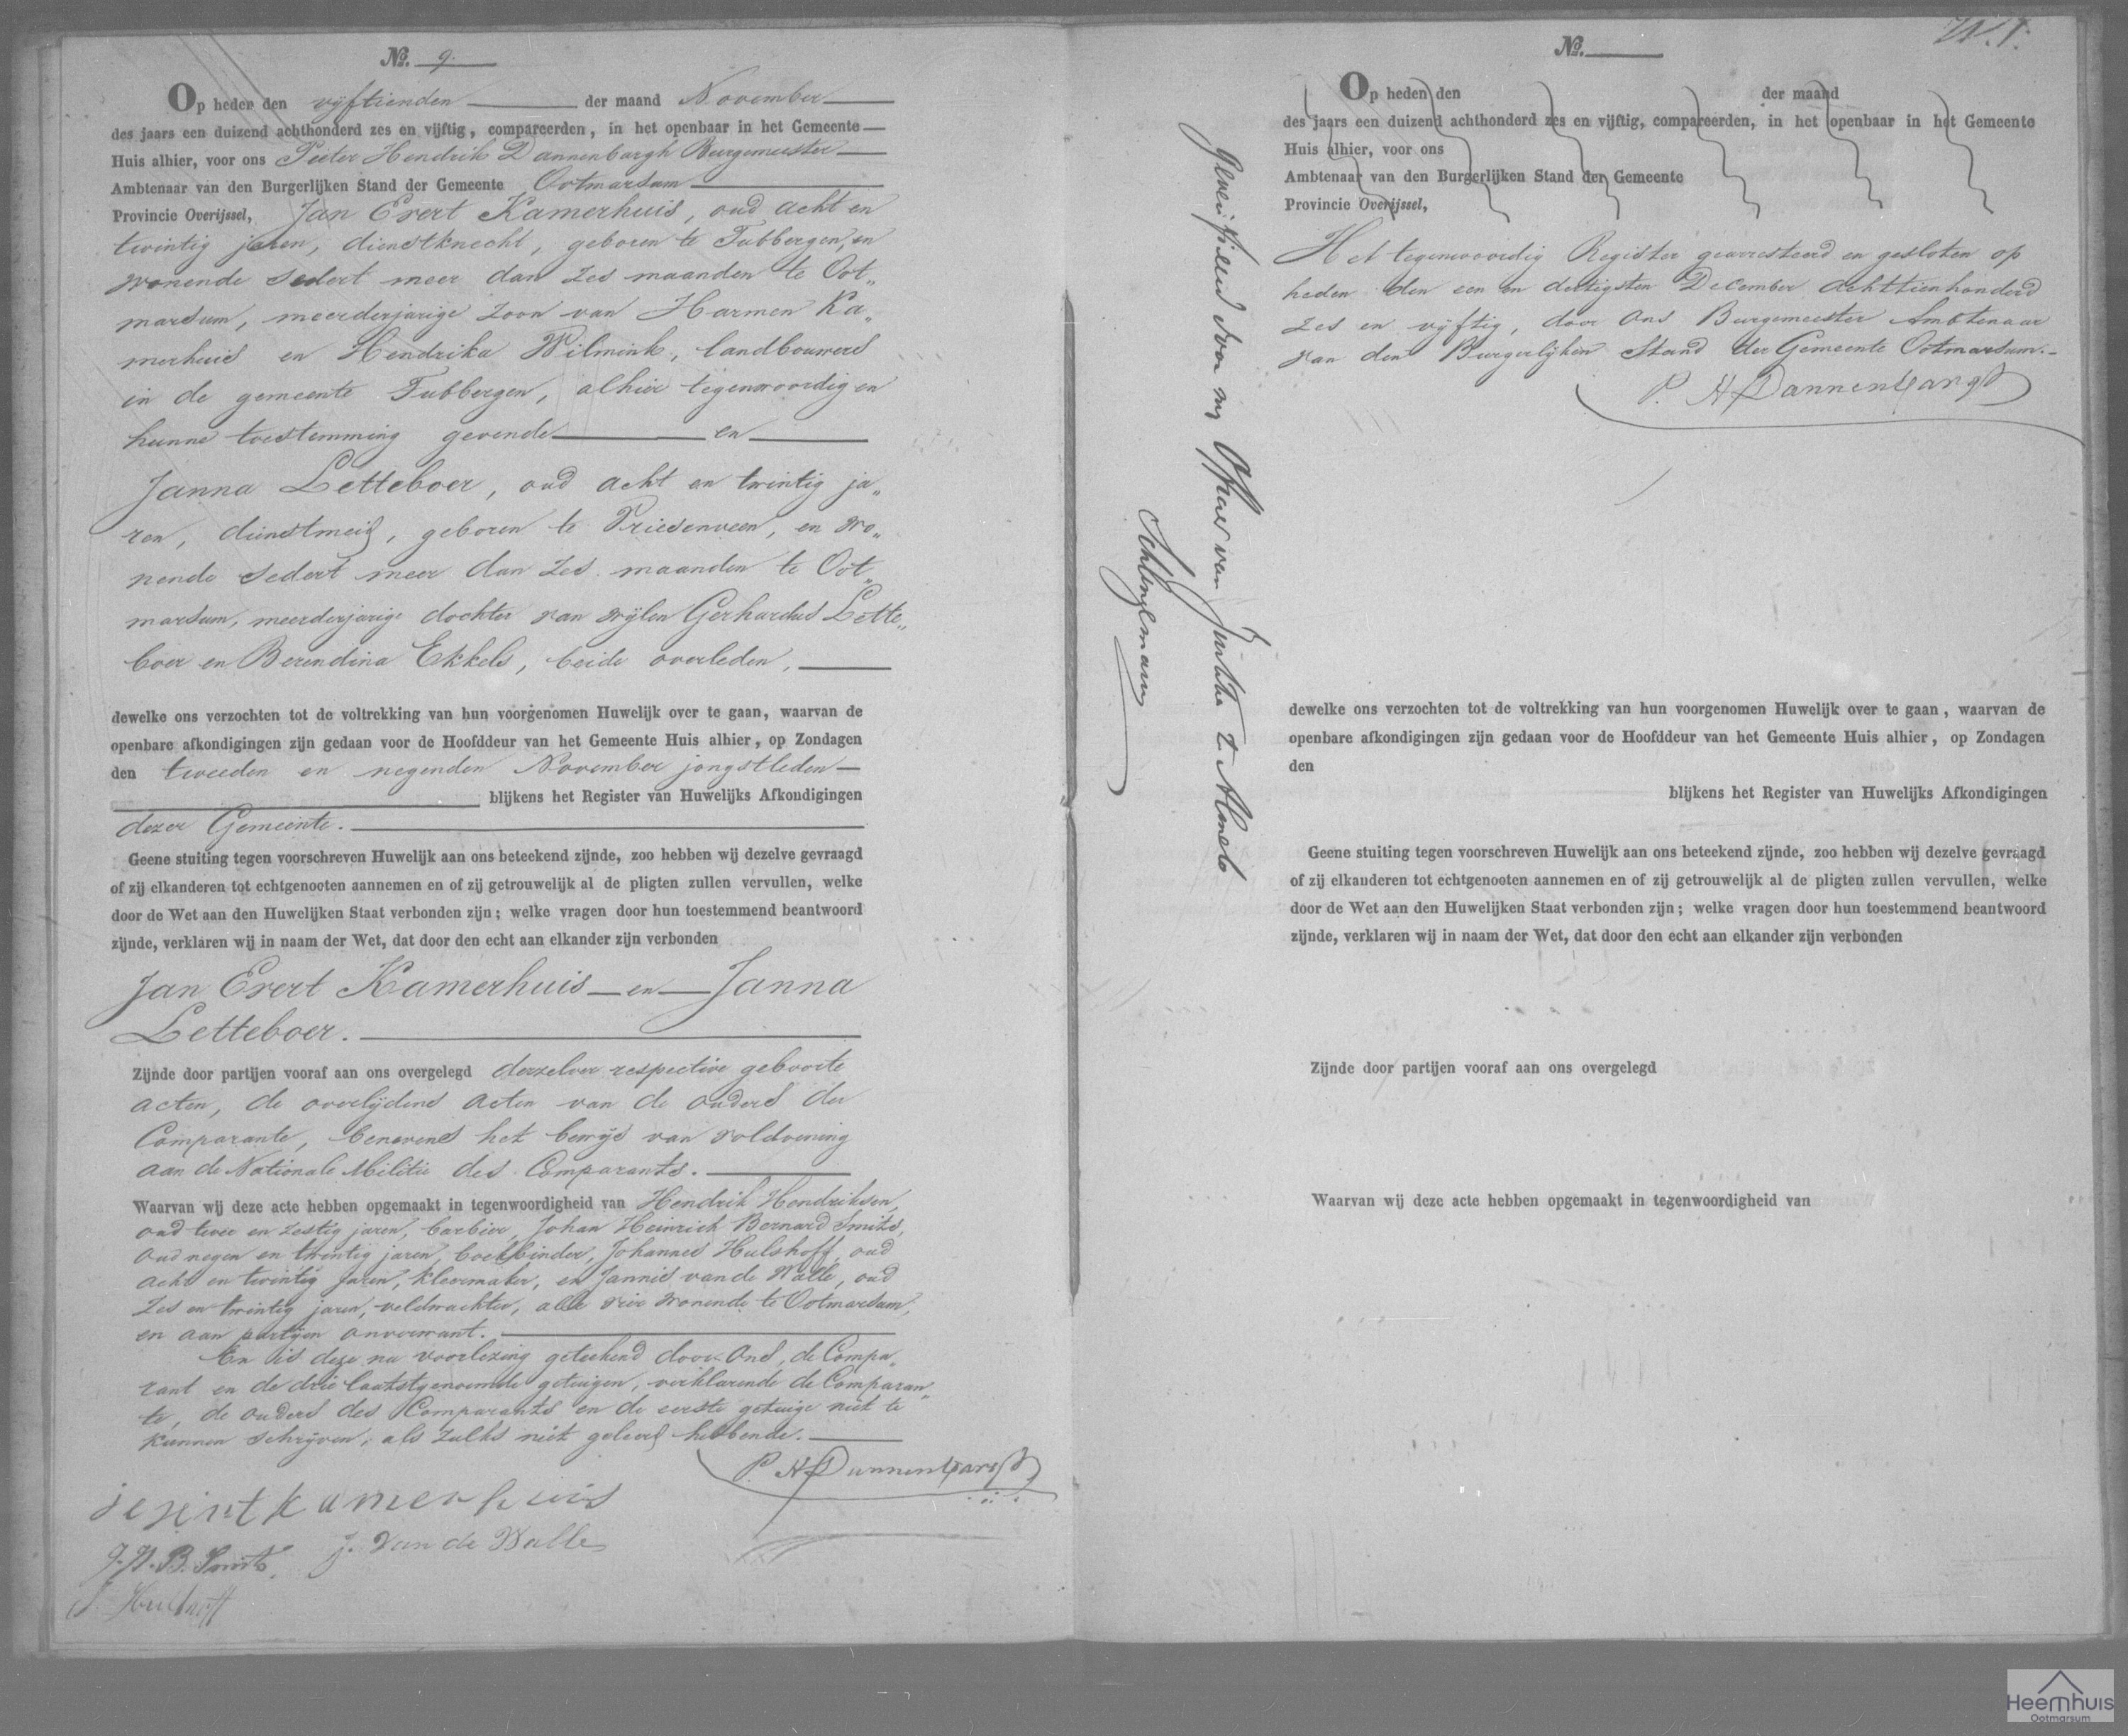 No. 9.
Op heden den vijftienden der maand November
des jaars een duizend achthonderd zes en vijftig, compareerden, in het openbaar in het Gemeente
Huis alhier, voor ons Pieter Hendrik Dannenbargh Burgemeester
Ambtenaar van den Burgerlijken Stand der Gemeente Ootmarsum
Provincie Overijssel, Jan Evert Kamerhuis, oud acht en
twintig jaren, dienstknecht, geboren te Tubbergen, en
wonende sedert meer dan zes maanden te Oot„
marsum, meerderjarige zoon van Harmen Ka„
merhuis en Hendrika Wilmink, landbouwers
in de gemeente Tubbergen, alhier tegenwoordig en
hunne toestemming gevende en
Janna Letteboer, oud acht en twintig ja„
ren, dienstmeid, geboren te Vriesenveen, en wo„
nende sedert meer dan zes maanden te Oot„
marsum, meerderjarige dochter van wijlen Gerhardus Lette„
boer en Berendina Ekkels, beide overleden,
dewelke ons verzochten tot de voltrekking van hun voorgenomen Huwelijk over te gaan, waarvan de
openbare afkondigingen zijn gedaan voor de Hoofddeur van het Gemeente Huis alhier, op Zondagen
den tweeden en negenden November jongstleden
blijkens het Register van Huwelijks Afkondigingen
dezer Gemeente.
Geene stuiting tegen voorschreven Huwelijk aan ons beteekend zijnde, zoo hebben wij dezelve gevraagd
of zij elkanderen tot echtgenooten aannemen en of zij getrouwelijk al de pligten zullen vervullen, welke
door de Wet aan den Huwelijken Staat verbonden zijn; welke vragen door hun toestemmend beantwoord
zijnde, verklaren wij in naam der Wet, dat door den echt aan elkander zijn verbonden
Jan Evert Kamerhuis en Janna
Letteboer.
Zijnde door partijen vooraf aan ons overgelegd derzelver respective geboorte
acten, de overlijdens acten van de ouders der
Comparante, benevens het bewijs van voldoening
aan de Nationale Militie des Comparants.
Waarvan wij deze acte hebben opgemaakt in tegenwoordigheid van Hendrik Hendriksen,
oud twee en zestig jaren, barbier, Johan Heinrich Bernard Smits,
oud negen en twintig jaren, boekbinder, Johannes Hulshoff, oud
acht en twintig jaren, kleermaker, en Jannis van de Walle, oud
zes en twintig jaren, veldwachter, alle vier wonende te Ootmarsum,
en aan partijen onverwant.
En is deze na voorlezing geteekend door Ons, de Compa„
rant en de drie laatstgenoemde getuigen, verklarende de Comparan„
te, de ouders des Comparants en de eerste getuige niet te
kunnen schrijven, als zulks niet geleerd hebbende.
P. H. Dannenbargh
kamerhuis
J. H. B. Smits. J. van de Walle
J. Hulshoff
Gewaarmerkt door mij Officier van Justitie t' Almelo
No.
Op heden den der maand
des jaars een duizend achthonderd zes en vijftig, compareerden, in het openbaar in het Gemeente
Huis alhier, voor ons
Ambtenaar van den Burgerlijken Stand der Gemeente
Provincie Overijssel,
Het tegenwoordig Register gearresteerd en gesloten op
heden den een en dertigsten December achttienhonderd
zes en vijftig, door Ons Burgemeester Ambtenaar
van den Burgerlijken Stand der Gemeente Ootmarsum.
P. H. Dannenbargh
dewelke ons verzochten tot de voltrekking van hun voorgenomen Huwelijk over te gaan, waarvan de
openbare afkondigingen zijn gedaan voor de Hoofddeur van het Gemeente Huis alhier, op Zondagen
den
blijkens het Register van Huwelijks Afkondigingen
Geene stuiting tegen voorschreven Huwelijk aan ons beteekend zijnde, zoo hebben wij dezelve gevraagd
of zij elkanderen tot echtgenooten aannemen en of zij getrouwelijk al de pligten zullen vervullen, welke
door de Wet aan den Huwelijken Staat verbonden zijn; welke vragen door hun toestemmend beantwoord
zijnde, verklaren wij in naam der Wet, dat door den echt aan elkander zijn verbonden
Zijnde door partijen vooraf aan ons overgelegd
Waarvan wij deze acte hebben opgemaakt in tegenwoordigheid van
Heemhuis
Ootmarsum